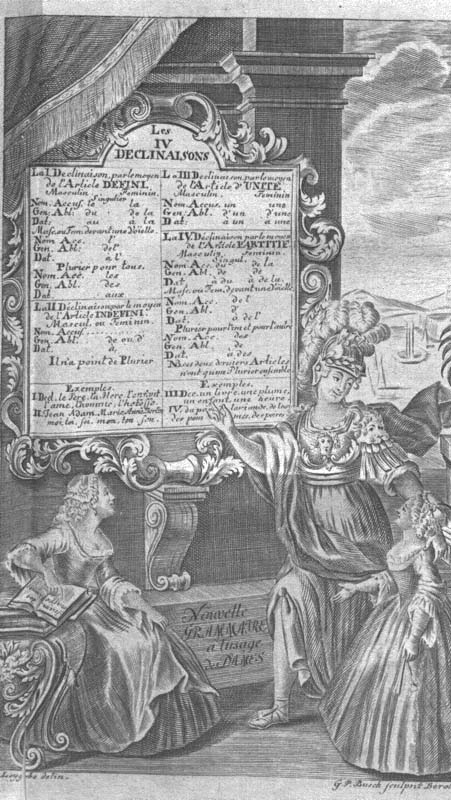 Les
IV
DECLINAISONS
La I Declinaison, par le moyen
de l'Article DEFINI.
Masculin Feminin.
singulier
Nom. Accus. le la
Gen. Abl. du de la
Dat. au à la
Masc. ou Fem. devant une Voielle.
Nom. Acc. l'
Gen. Abl. de l'
Dat. à l'
Plurier pour tous.
Nom. Acc. les
Gen. Abl. des
Dat. aux
La II Declinaison par le moyen
de l'Article INDEFINI.
Mascul. ou Feminin.
Nom. Accus.
Gen. Abl. de ou d'
Dat. à
Il n'a point de Plurier
Exemples.
I Decl. le Pere, la Mere, l'enfant
l'ame, l'homme, l'hotesse.
II. Jean Adam, Marie Anne Berlin
moi, toi, soi, mon, ton, son.
La III Declinaison, par le moyen
de l'Article d'UNITE
Masculin. Feminin
Nom. Accus. un une
Gen. Abl. d'un d'une
Dat. à un à une
La IV Declinaison par le moyen
de l'Article PARTITIF.
Masculin. Feminin.
singul.
Nom. Acc. du de la
Gen. Abl. de de
Dat. à du à de la
Masc. ou Fem. devant une Voielle
Nom. Acc. de l'
Gen. Abl. d'
Dat. à de l'
Plurier pour l'un et pour l'autre
Nom. Acc. des
Gen. Abl. de
Dat. à des
Ces deux derniers Articles
n'ont qu'un Plurier ensemble
Exemples.
III Dec. un livre, une plume,
un enfant, une heure
IV. du pain, la viande, de l'eau
des pommes, des poires
Nouvelle
GRAMMAIRE
a l'usage
des DAMES
delin.
G. P. Busch sculpsit Berol